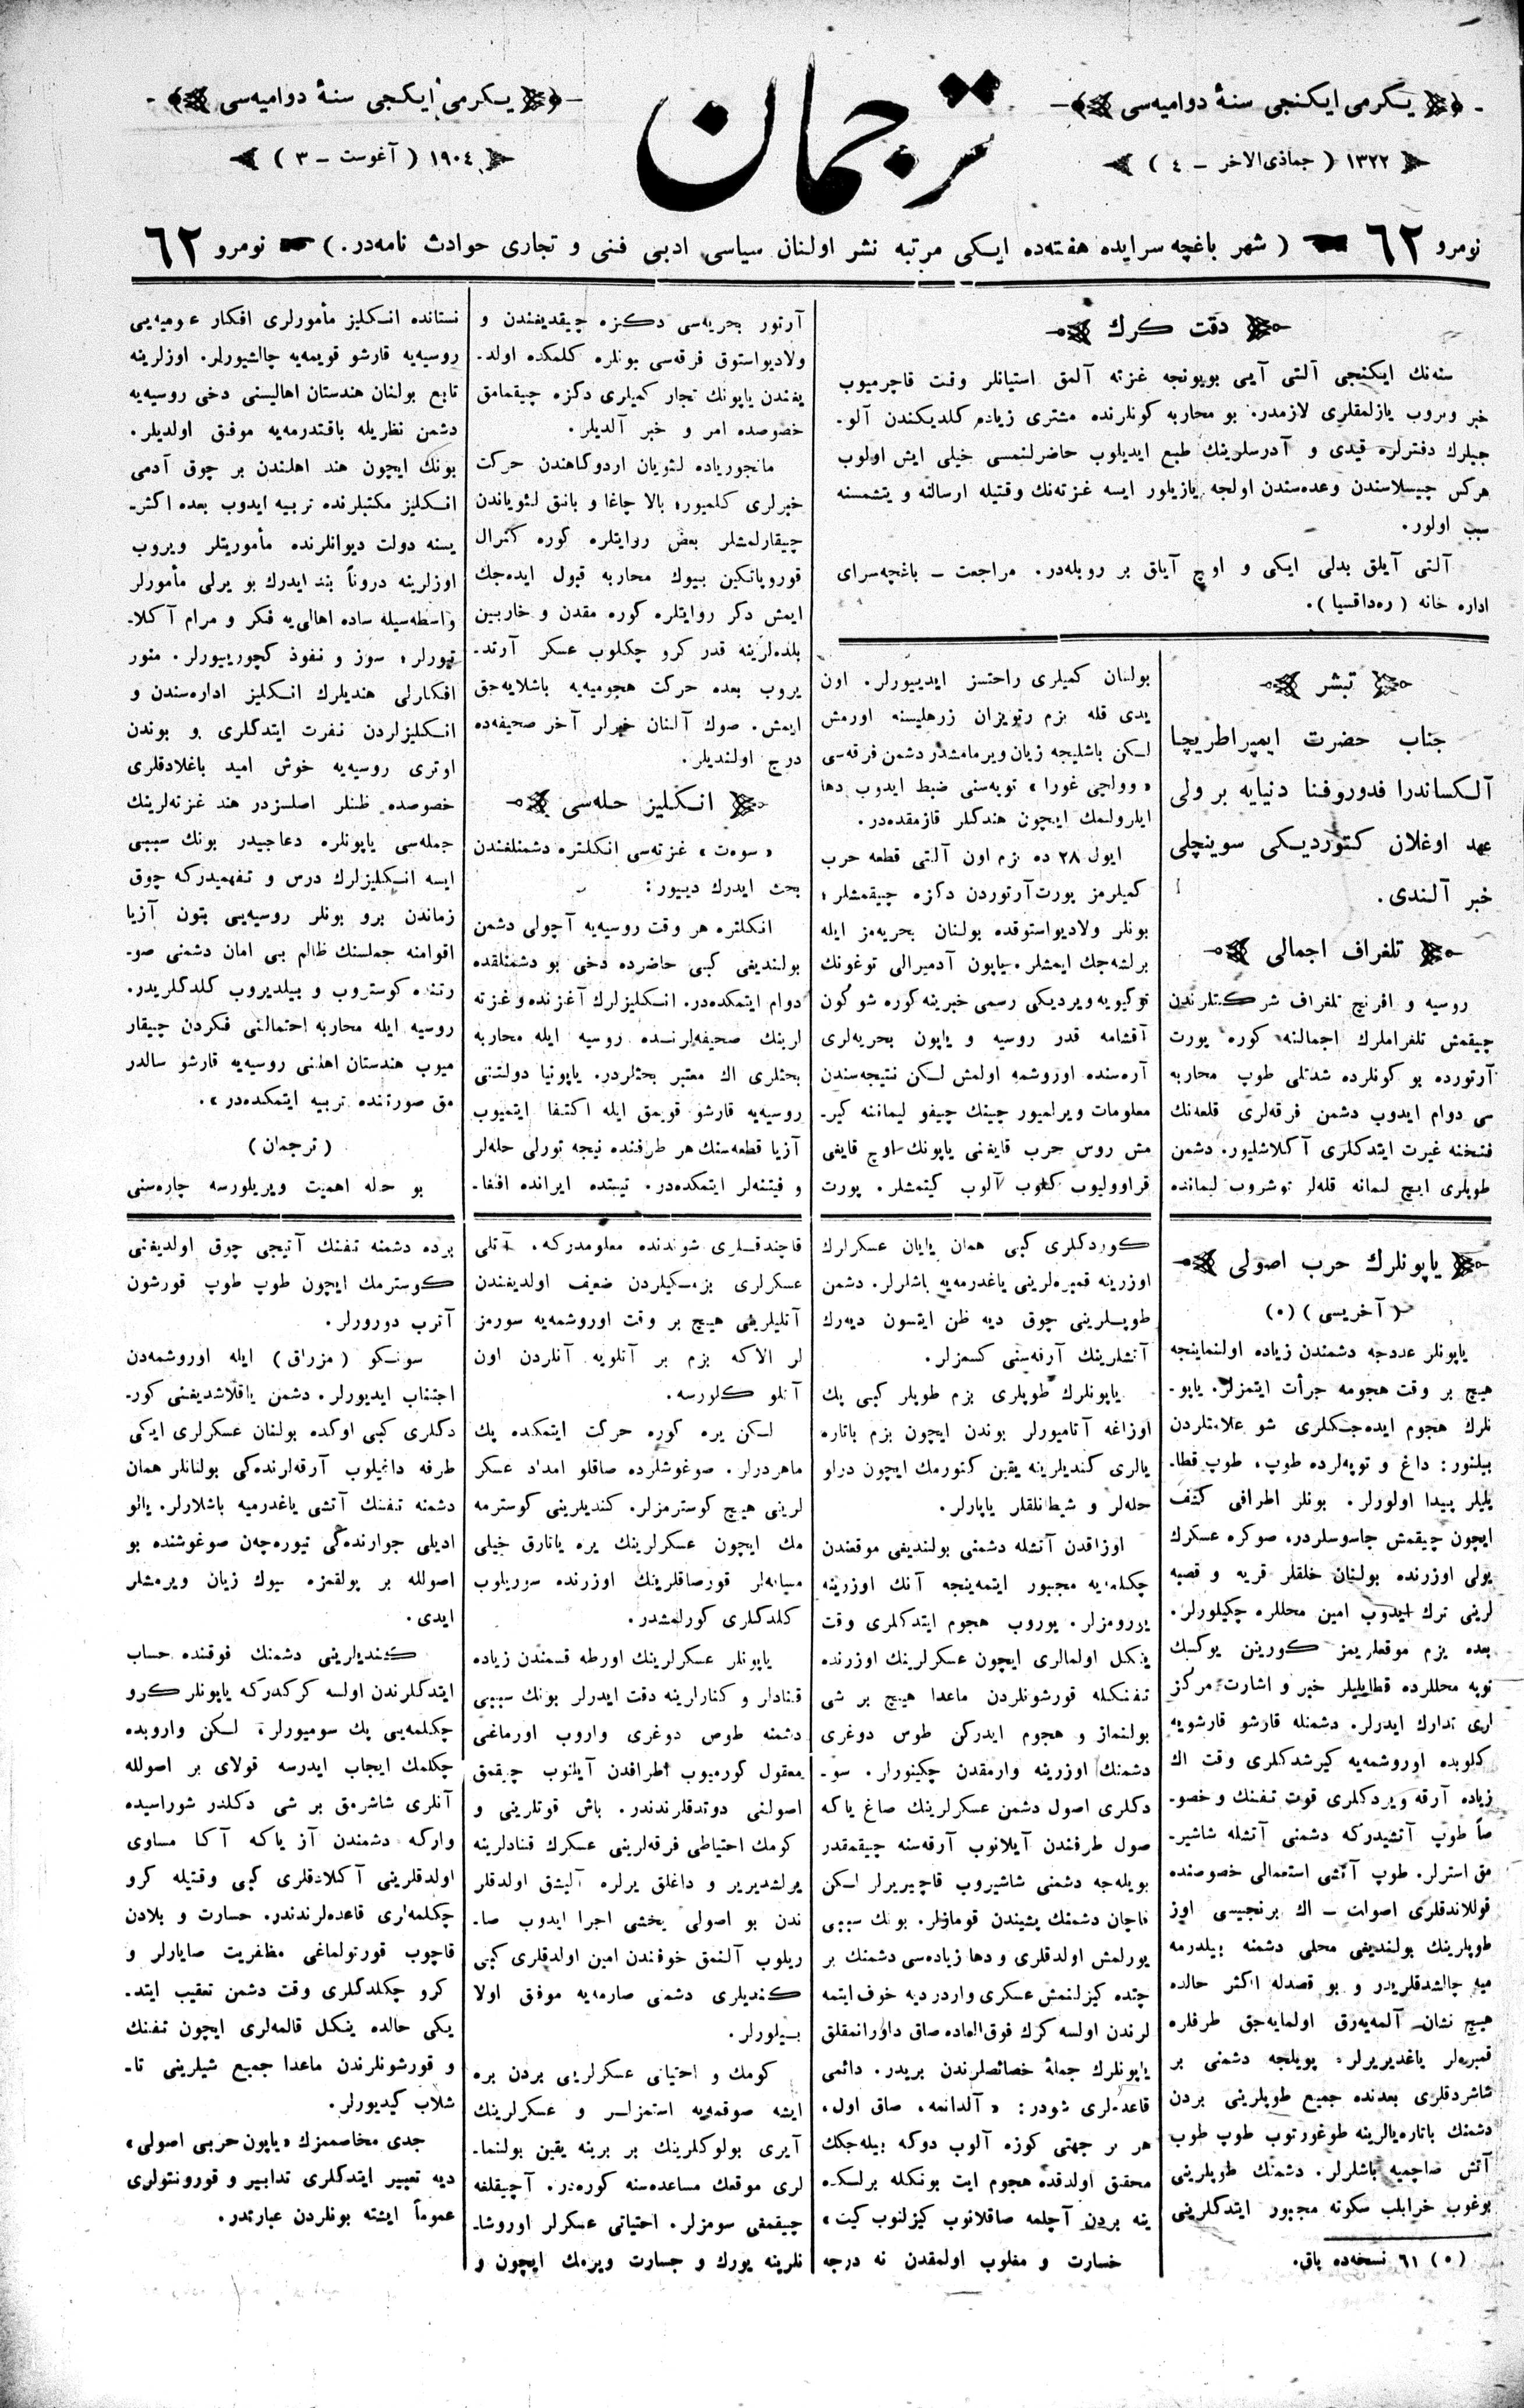 یكرمی ایكنجی سنهٔ دوامیه‌سی
١٣٢٢ ( جماذی‌الاخر ـ ٤ )
ترجمان
یكرمی ایكنجی سنهٔ دوامیه‌سی
١٩٠٤ ( آغوست ـ ٣ )
نومرو ٦٢ ( شهر باغچه سرایده هفته‌ده ایكی مرتبه نشر اولنان سیاسی ادبی فنی و تجاری حوادث نامه‌در. ) نومرو ٦٢
دقت كرك
سنه‌نك ایكنجی آلتی آیی بویونجه غزته آلمق استیانلر وقت قاچرمیوب
خبر ویروب یازلمقلری لازمدر. بو محاربه كونلرنده مشتری زیاده كلدیكندن آلو-
جیلرك دفترلره قیدی و آدرسلرینك طبع ایدیلوب حاضرلنمسی خیلی ایش اولوب
هركس چیسلاسندن وعده‌سندن اولجه یازیلور ایسه غزته‌نك وقتیله ارسالنه و یتشمسنه
سبب اولور.
آلتی آیلق بدلی ایكی و اوچ آیلق بر روبله‌در. مراجعت ـ باغچه‌سرای
اداره خانه ( ره‌داقسیا ).
تبشر
جناب حضرت ایمپراطریچا
آلكساندرا فدوروفنا دنیایه بر ولی
عهد اوغلان كتوردیكی سوینچلی
خبر آلندی.
تلغراف اجمالی
روسیه و افرنج تلغراف شركتلرندن
چیقمش تلغراملرك اجمالنه كوره پورت
آرتورده بو كونلرده شدتلی طوپ محاربه
سی دوام ایدوب دشمن فرقه‌لری قلعه‌نك
فتخنه غیرت ایتدكلری آكلاشلیور. دشمن
طوپلری ایچ لیمانه قله‌لر توشروب لیمانده
بولنان كمیلری راحتسز ایدییورلر. اون
یدی قله بزم رتویزان زرهلیسنه اورمش
لكن باشلیجه زیان ویرمامشدر دشمن فرقه‌سی
« وواچی غورا » توپه‌سنی ضبط ایدوب دها
ایلرولمك ایچون هندكلر قازمقده‌در.
ایول ٢٨ ده بزم اون آلتی قطعه حرب
كمیلرمز پورت آرتوردن دكزه چیقمشلر ؛
بونلر ولادیواستوقده بولنان بحریه‌مز ایله
برلشه‌جك ایمشلر. یاپون آدمیرالی توغونك
توكیویه ویردیكی رسمی خبرینه كوره شو كون
آقشامه قدر روسیه و یاپون بحریه‌لری
آره‌سنده اوروشمه اولمش لكن نتیجه‌سندن
معلومات ویرلمیور چینك چیفو لیماننه كیر-
مش روس حرب قایغنی یاپونك اوچ قایغی
قراوولیوب كلوب آلوب كیتمشلر. پورت
آرتور بحریه‌سی دكزه چیقدیغندن و
ولادیواستوق فرقه‌سی بونلره كلمكده اولد-
یغندن یاپونك تجار كمیلری دكزه چیقمامق
خصوصده امر و خبر آلدیلر.
مانجوریاده لئویان اردوكاهندن حركت
خبرلری كلمیور؛ بالا چاغا و بانق لئویاندن
چیقارلمشلر بعض روایتلره كوره كنرال
قوروپاتكین بیوك محاربه قبول ایده‌جك
ایمش دكر روایتلره كوره مقدن و خاربین
بلده‌لرینه قدر كرو چكلوب عسكر آرتد-
یروب بعده حركت هجومیه‌یه باشلایه‌جق
ایمش. صوك آلنان خبرلر آخر صحیفه‌ده
درج اولندیلر.
انكلیز حله‌سی
« سوه‌ت » غزته‌سی انكلتره دشمنلغندن
بحث ایدرك دییور :
انكلتره هر وقت روسیه‌یه آچولی دشمن
بولندیغی كبی حاضرده دخی بو دشمنلقده
دوام ایتمكده‌در. انكلیزلرك آغزنده و غزته
لرینك صحیفه‌لرنسده روسیه ایله محاربه
بحثلری اك معتبر بحثلردر. یاپونیا دولتنی
روسیه‌یه قارشو قویمق ایله اكتفا ایتمیوب
آزیا قطعه‌سنك هر طرفنده نیجه تورلی حله‌لر
و فیتنه‌لر ایتمكده‌در. تیبتده ایرانده افغا-
نستانده انكلیز مأمورلری افكار عومیه‌یی
روسیه‌یه قارشو قویمه‌یه چالشیورلر. اوزلرینه
تابع بولنان هندستان اهالیسنی دخی روسیه‌یه
دشمن نظریله باقتدرمه‌یه موفق اولدیلر.
بونك ایچون هند اهلندن بر چوق آدمی
انكلیز مكتبلرنده تربیه ایدوب بعده اكثر-
یسنه دولت دیوانلرنده مأموریتلر ویروب
اوزلرینه دروناً بند ایدرك بو یرلی مأمورلر
واسطه‌سیله ساده اهالی‌یه فكر و مرام آكلا-
تیورلر ؛ سوز و نفوذ كچورییورلر. منور
افكارلی هندیلرك انكلیز اداره‌سندن و
انكلیزلردن نفرت ایتدكلری و بوندن
اوتری روسیه‌یه خوش امید باغلادقلری
خصوصده ظنلر اصلسزدر هند غزته‌لرینك
جمله‌سی یاپونلره دعاجیدر بونك سببی
ایسه انكلیزلرك درس و تفهمیدركه چوق
زماندن برو بونلر روسیه‌یی بتون آزیا
اقوامنه جمله‌سنك ظالم بی امان دشمنی صو-
رتنده كوستروب و بیلدیروب كلدكلریدر.
روسیه ایله محاربه احتمالنی فكردن چیقار
میوب هندستان اهلنی روسیه‌یه قارشو سالدر
مق صورتنده تربیه ایتمكده‌در ».
( ترجمان )
بو حله اهمیت ویریلورسه چاره‌سنی
یاپونلرك حرب اصولی
( آخریسی ) (٥)
یاپونلر عددجه دشمندن زیاده اولنماینجه
هیچ بر وقت هجومه جرأت ایتمزلر. یاپو-
نلرك هجوم ایده‌جكلری شو علامتلردن
بیلنور : داغ و توپه‌لرده طوپ، طوپ قطا-
یلیلر پیدا اولورلر. بونلر اطرافی كشف
ایچون چیقمش جاسوسلردر، صوكره عسكرك
یولی اوزرنده بولنان خلقلر قریه و قصبه
لرینی ترك ایدوب امین محللره چكیلورلر.
بعده بزم موقعلریمز كورینن یوكسك
توپه محللرده قطایلیلر خبر و اشارت مركز
لری تدارك ایدرلر. دشمنله قارشو قارشویه
كلوبده اوروشمه‌یه كیرشدكلری وقت اك
زیاده آرقه ویردكلری قوت تفنك و خصو-
صاً طوپ آتشیدركه دشمنی آتشله شاشیر-
مق استرلر. طوپ آتشی استعمالی خصوصنده
قوللاندقلری اصولت ـ اك برنجیسی اوز
طوپلرینك بولندیغی محلی دشمنه بیلدرمه
میه چالشدقلریدر و بو قصدله اكثر حالده
هیچ نشان آلمه‌یه‌رق اولمایه‌جق طرفلره
قمبره‌لر یاغدیریرلر؛ بویلجه دشمنی بر
شاشردقلری بعدنده جمیع طوپلرینی بردن
دشمنك باتاره‌یالرینه طوغورتوب طوپ طوپ
آتش صاچمیه باشلرلر. دشمنك طوپلرینی
بوغوب خرابلب سكوته مجبور ایتدكلرینی
(٥) ٦١ نسخه‌ده باق.
كوردكلری كبی همان یایان عسكرلرك
اوزرینه قمبره‌لرینی یاغدرمه‌یه باشلرلر. دشمن
طوپلرینی چوق دیه ظن ایتسون دیه‌رك
آتشلرینك آرقه‌سنی كسمزلر.
یاپونلرك طوپلری بزم طوپلر كبی پك
اوزاغه آتامیورلر بوندن ایچون بزم باتاره
یالری كندیلرینه یقین كتورمك ایچون درلو
حله‌لر و شیطانلقلر یاپارلر.
اوزاقدن آتشله دشمنی بولندیغی موقعندن
چكلمه‌یه مجبور ایتمه‌ینجه آنك اوزرینه
یورومزلر. یوروب هجوم ایتدكلری وقت
ینكل اولمالری ایچون عسكرلرینك اوزرنده
تفنكله قورشونلردن ماعدا هیچ بر شی
بولنماز و هجوم ایدركن طوس دوغری
دشمنك اوزرینه وارمقدن چكینورلر. سو-
دكلری اصول دشمن عسكرلرینك صاغ یاكه
صول طرفندن آیلانوب آرقه‌سنه چیقمقدر
بویله‌جه دشمنی شاشیروب قاچیریرلر لكن
قاچان دشمنك پشیندن قومازلر. بونك سببی
یورلمش اولدقلری و دها زیاده‌سی دشمنك بر
چتده كیزلنمش عسكری واردر دیه خوف ایتمه
لرندن اولسه كرك فوق العاده صاق داورانمقلق
یاپونلرك جملهٔ خصائصلرندن بریدر. دائمی
قاعده‌لری شودر : « آلدانمه، صاق اول،
هر بر جهتی كوزه آلوب دوكه بیله‌جكك
محقق اولدقده هجوم ایت بونكله برلكده
ینه بردن آچلمه صاقلانوب كیزلنوب كیت »
خسارت و مغلوب اولمقدن نه درجه
قاچندقلری شوندنده معلومدركه، آتلی
عسكرلری بزمكیلردن ضعیف اولدیغندن
آتلیلرینی هیچ بر وقت اوروشمه‌یه سورمز
لر الاكه بزم بر آتلویه آنلردن اون
آتلو كلورسه.
لكن یره كوره حركت ایتمكده پك
ماهردرلر. صوغوشلرده صاقلو امداد عسكر
لرینی هیچ كوسترمزلر. كندیلرینی كوسترمه
مك ایچون عسكرلرینك یره یاتارق خیلی
مسافه‌لر قورصاقلرینك اوزرنده سوریلوب
كلدكلری كورلمشدر.
یاپونلر عسكرلرینك اورطه قسمندن زیاده
قنادلر و كنارلرینه دقت ایدرلر بونك سببی
دشمنه طوص دوغری واروب اورماغی
معقول كورمیوب اطرافدن آیلنوب چیقمق
اصولنی دوتدقلرندندر. باش قوتلرینی و
كومك احتیاطی فرقه‌لرینی عسكرك قنادلرینه
یرلشدیریر و داغلق یرلره آلیشق اولدقلر
ندن بو اصولی یخشی اجرا ایدوب صا-
ریلوب آلنمق خوفندن امین اولدقلری كبی
كندیلری دشمنی صارمه‌یه موفق اولا
بیلورلر.
كومك و احتیاتی عسكرلرینی بردن بره
ایشه صوقمه‌یه استمزلر و عسكرلرینك
آیری بولوكلرینك بر برینه یقین بولنما-
لری موقعك مساعده‌سنه كوره‌در. آچیقلغه
چیقمغی سومزلر. احتیاتی عسكرلر اوروشا-
نلرینه یورك و جسارت ویرمك ایچون و
برده دشمنه تفنك آتیجی چوق اولدیغنی
كوسترمك ایچون طوپ طوپ قورشون
آترب دورورلر.
سونكو ( مزراق ) ایله اوروشمه‌دن
اجتناب ایدیورلر. دشمن یاقلاشدیغنی كور-
دكلری كبی اوكده بولنان عسكرلری ایكی
طرفه داغیلوب آرقه‌لرنده‌كی بولنانلر همان
دشمنه تفنك آتشی یاغدرمیه باشلارلر. یالو
ادیلی جوارنده‌كی تیوره‌چه‌ن صوغوشنده بو
اصولله بر پولقمزه بیوك زیان ویرمشلر
ایدی.
كندیلرینی دشمنك فوقنده حساب
ایتدكلرندن اولسه كركدركه یاپونلر كرو
چكلمه‌یی پك سومیورلر؛ لكن واروبده
چكلمك ایجاب ایدرسه قولای بر اصولله
آنلری شاشرمق بر شی دكلدر شوراسیده
واركه دشمندن آز یاكه آكا مساوی
اولدقلرینی آكلادقلری كبی وقتیله كرو
چكلمه‌لری قاعده‌لرندندر. خسارت و بلادن
قاچوب قورتولماغی مظفریت صایارلر و
كرو چكلدكلری وقت دشمن تعقیب ایتد-
یكی حالده ینكل قالمه‌لری ایچون تفنك
و قورشونلرندن ماعدا جمیع شیلرینی تا-
شلاب كیدیورلر.
جدی مخاصممزك « یاپون حربی اصولی »
دیه تعبیر ایتدكلری تدابیر و قورونتولری
عموماً ایشته بونلردن عبارتدر.